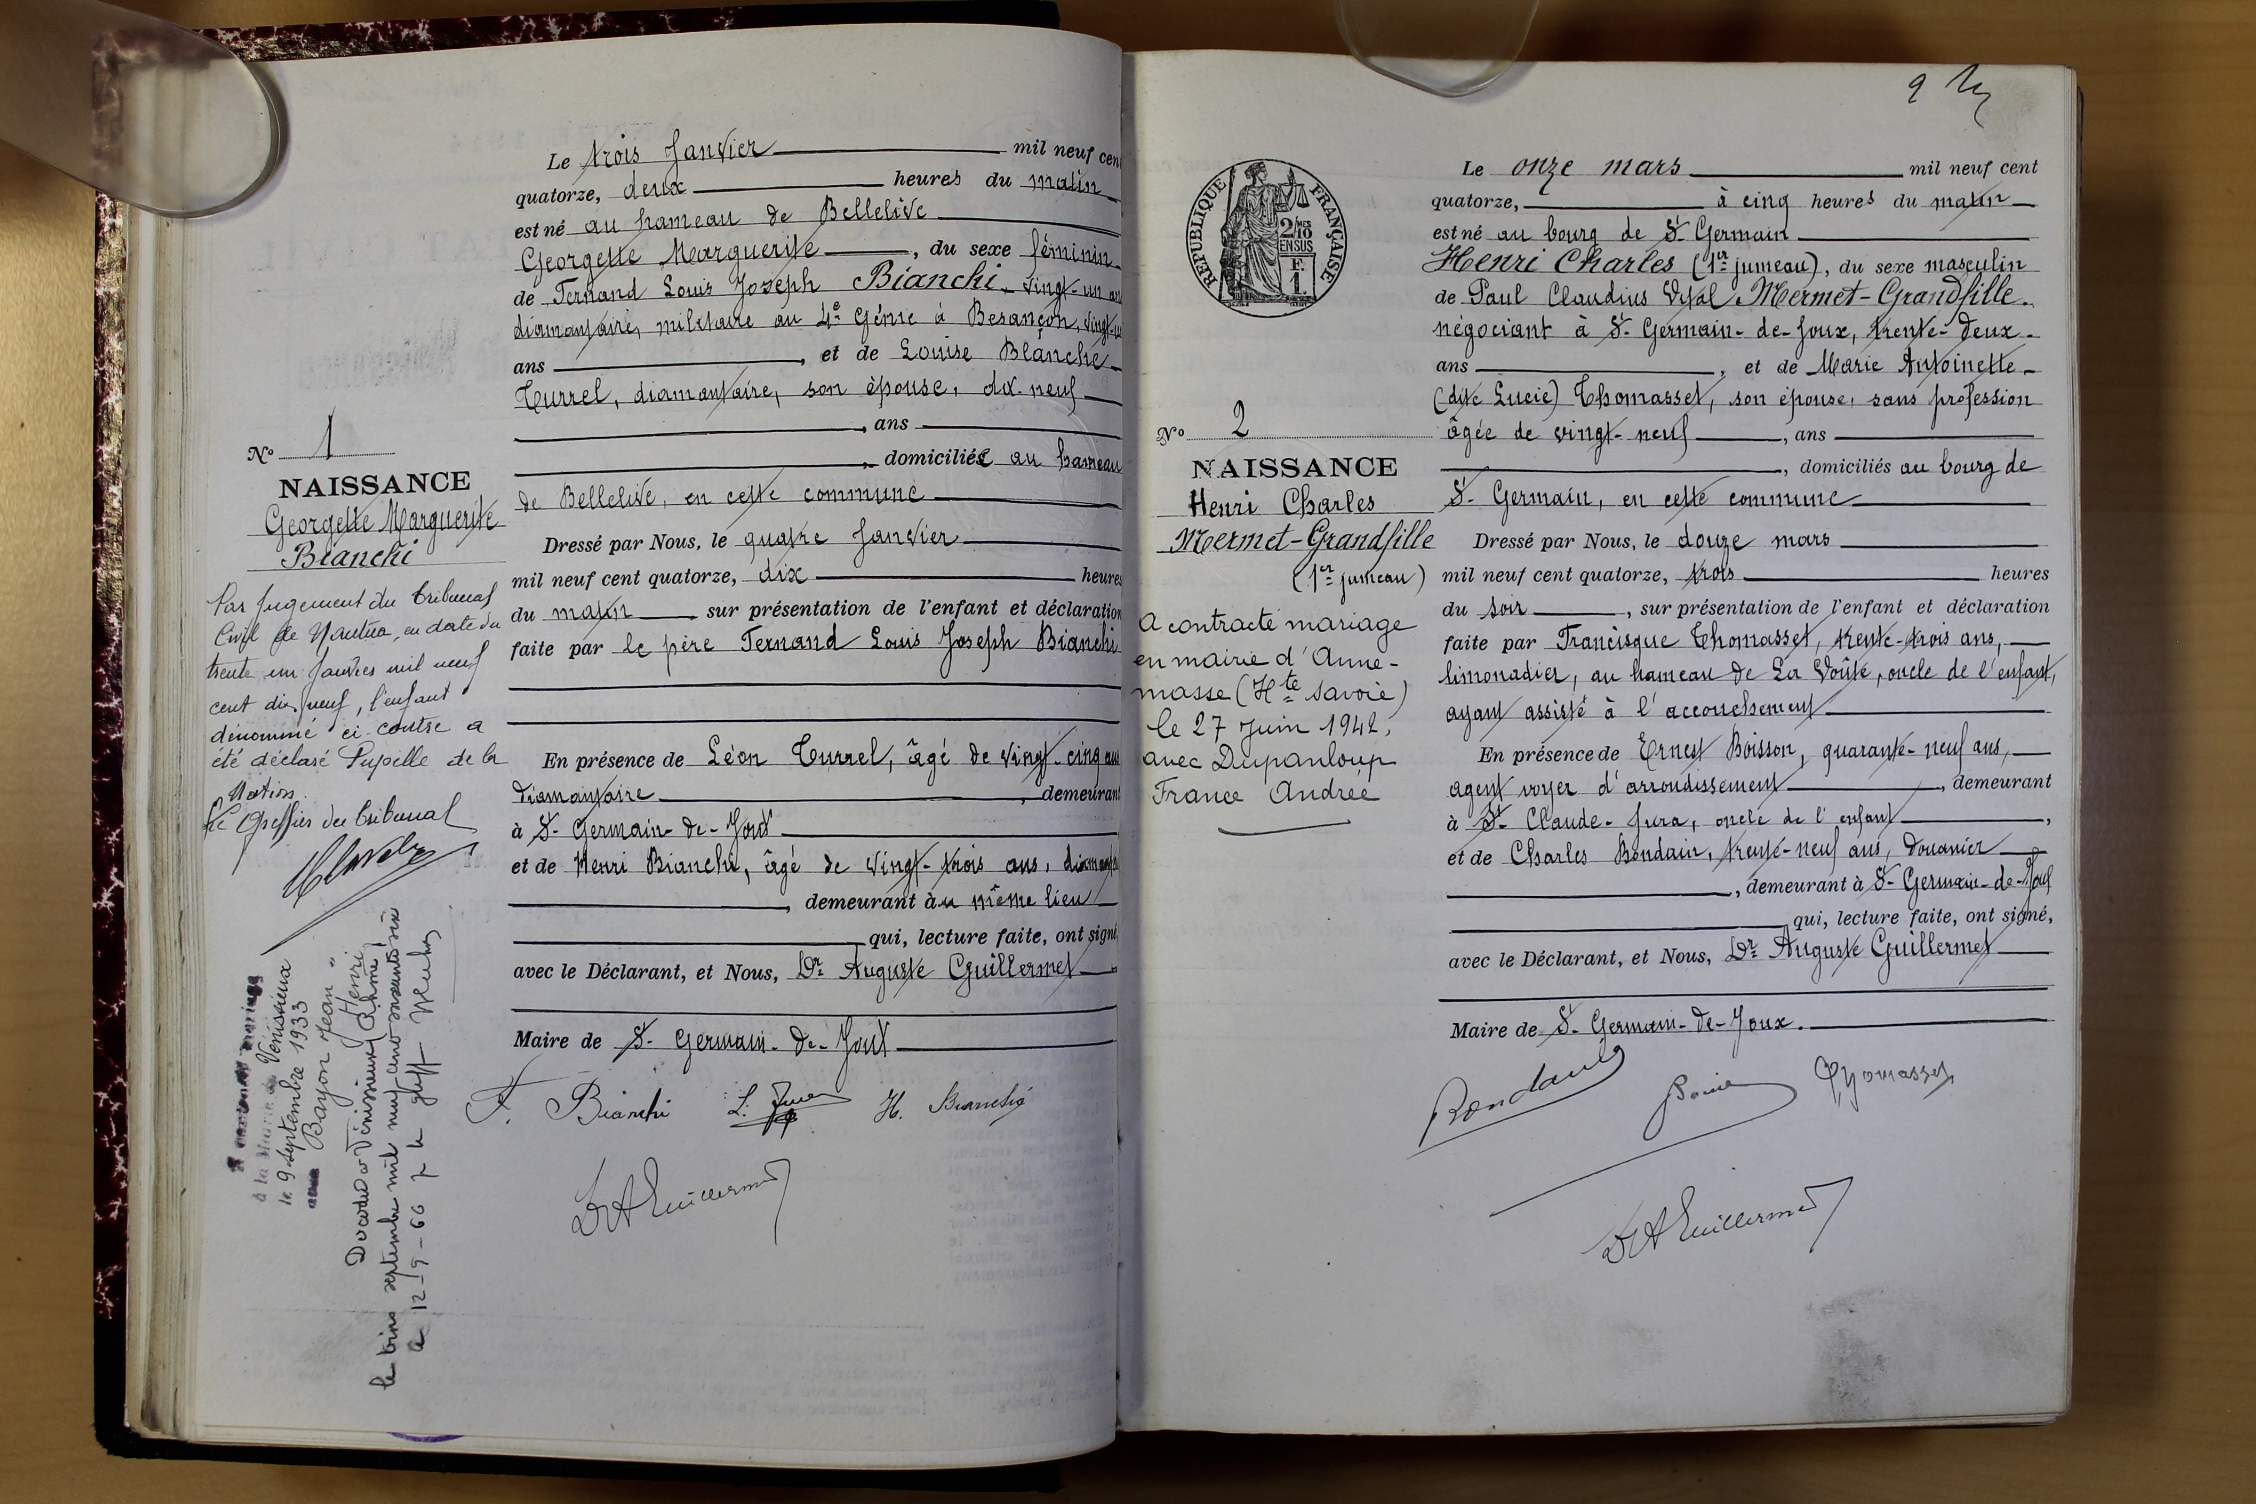 Le trois Janvier mil neuf cent
quatorze, deux heures du matin
est né au hameau de Bellelive
Georgette Marguerite, du sexe féminin
de Fernand Louis Joseph Bianchi vingt-un ans
diamantaire, militaire au 4e Génie à Besançon, vingt-un
ans, et de Louise Blanche
Turrel, diamantaire, son épouse, dix-neuf
, ans
, domiciliés au hameau
de Bellelive, en cette commune
Dressé par Nous, le quatre Janvier
mil neuf cent quatorze, dix heures
du matin, sur présentation de l'enfant et déclaration
faite par le père Fernand Louis Joseph Bianchi
En présence de Léon Turrel, âgé de vingt-cinq ans
diamantaire, demeurant
à St Germain-de-Joux
et de Henri Bianchi, âgé de vingt-trois ans, diamantaire
, demeurant au même lieu
qui, lecture faite, ont signé
avec le Déclarant, et Nous, Dr Auguste Guillermet
Maire de St Germain-de-Joux
F. Bianchi L. H. Bianchi
Dr A Guillermet
No 1
NAISSANCE
Georgette Marguerite
Bianchi
Par Jugement du Tribunal
Civil de Nantua, en date du
trente un Janvier mil neuf
cent dix neuf, l'enfant
dénommé ci-contre a
été déclaré Pupille de la
Nation.
Le Greffier du tribunal
A contracté mariage
à la Mairie de Vénissieux
le 9 septembre 1933
avec Bayon Jean "Henri"
Décédée à Vénissieux (Rhône)
le trois septembre mil neuf cent soixante six
le 12-9-66
9
RÉPUBLIQUE FRANÇAISE
2/10 EN SUS
F. 1.
Le onze mars mil neuf cent
quatorze, à cinq heures du matin
est né au bourg de St Germain
Henri Charles (1er jumeau), du sexe masculin
de Paul Claudius Vital Mermet-Grandfille
négociant à St Germain-de-Joux, trente-deux
ans, et de Marie Antoinette
(dite Lucie) Thomasset, son épouse, sans profession
âgée de vingt-neuf, ans
, domiciliés au bourg de
St Germain, en cette commune
Dressé par Nous, le douze mars
mil neuf cent quatorze, trois heures
du soir, sur présentation de l'enfant et déclaration
faite par Francisque Thomasset, trente-trois ans,
limonadier, au hameau de La Voûte, oncle de l'enfant,
ayant assisté à l'accouchement
En présence de Ernest Boisson, quarante-neuf ans,
agent voyer d'arrondissement, demeurant
à St Claude-Jura, oncle de l'enfant,
et de Charles Bondain, trente-neuf ans, douanier
, demeurant à St Germain-de-Joux
qui, lecture faite, ont signé,
avec le Déclarant, et Nous, Dr Auguste Guillermet
Maire de St Germain-de-Joux.
Thomasset
Dr A Guillermet
No 2
NAISSANCE
Henri Charles
Mermet-Grandfille
(1er jumeau)
A contracté mariage
en mairie d'Anne-
masse (Hte Savoie)
le 27 Juin 1942,
avec Dupanloup
France Andrée